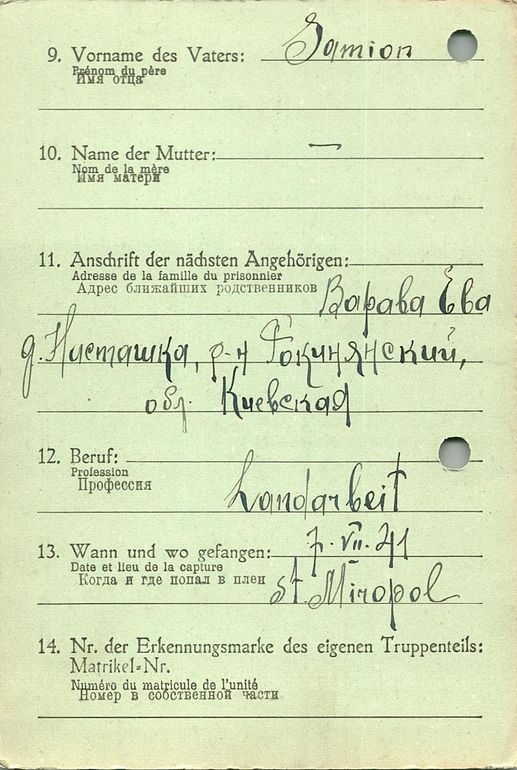 9. Vorname des Vaters: Samion
Prénom du père
Имя отца
10. Name der Mutter: —
Nom de la mère
Имя матери
11. Anschrift der nächsten Angehörigen:
Adresse de la famille du prisonnier
Адрес ближайших родственников Варава Ева
д. Насташка, р-н Рокинянский,
обл. Киевская
12. Beruf:
Profession
Профессия Landarbeit
13. Wann und wo gefangen: 7. VII. 41
Date et lieu de la capture
Когда и где попал в плен st. Miropol
14. Nr. der Erkennungsmarke des eigenen Truppenteils:
Matrikel-Nr.
Numéro du matricule de l'unité
Номер в собственной части